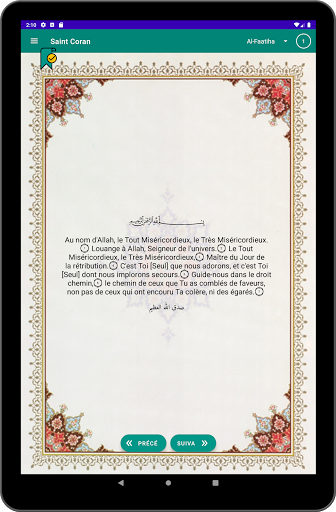 2:10
Saint Coran
Al-Faatiha
1
بسم الله الرحمن الرحيم
Au nom d'Allah, le Tout Miséricordieux, le Très Miséricordieux.
Louange à Allah, Seigneur de l'univers. Le Tout
Miséricordieux, le Très Miséricordieux, Maître du Jour de
la rétribution. C'est Toi [Seul] que nous adorons, et c'est Toi
[Seul] dont nous implorons secours. Guide-nous dans le droit
chemin, le chemin de ceux que Tu as comblés de faveurs,
non pas de ceux qui ont encouru Ta colère, ni des égarés.
صدق الله العظيم
« PRÉCÉ
SUIVA »